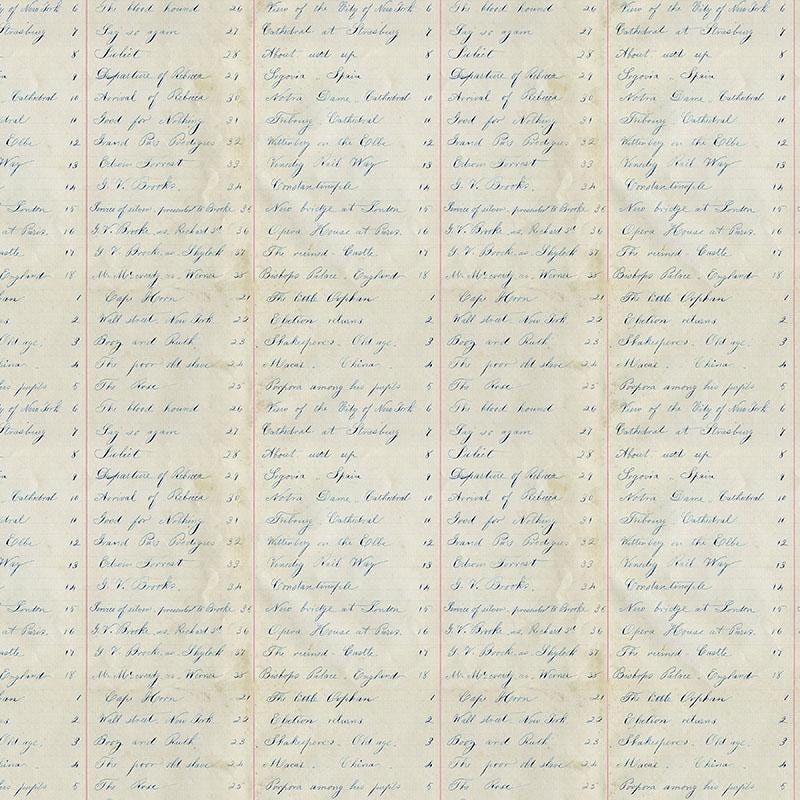 y of New York 6 The blood hound 26 View of the City of New York 6 The blood hound 26 View of the City of New York 6
Strasburg 7 Say so again 27 Cathedral at Strasburg 7 Say so again 27 Cathedral at Strasburg 7
8 Juliet 28 About used up 8 Juliet 28 About used up 8
9 Departure of Rebecca 29 Segovia - Spain 9 Departure of Rebecca 29 Segovia - Spain 9
Cathedral 10 Arrival of Rebecca 30 Notra Dame - Cathedral 10 Arrival of Rebecca 30 Notra Dame - Cathedral 10
11 Good for Nothing 31 Friburg Cathedral 11 Good for Nothing 31 Friburg Cathedral 11
Elbe 12 Grand Pa's Prodigies 32 Wittenberg on the Elbe 12 Grand Pa's Prodigies 32 Wittenberg on the Elbe 12
Way 13 Edwin Forrest 33 Rail Way 13 Edwin Forrest 33 Rail Way 13
14 G. V. Brooke. 34 Constantinople 14 G. V. Brooke. 34 Constantinople 14
at London 15 Service of silver, presented to Brooke 35 New bridge at London 15 Service of silver, presented to Brooke 35 New bridge at London 15
at Paris. 16 G. V. Brooke, as, Richard 3d 36 Opera House at Paris. 16 G. V. Brooke, as, Richard 3d 36 Opera House at Paris. 16
17 G. V. Brooke, as Shylock 37 The ruined - Castle 17 G. V. Brooke, as Shylock 37 The ruined - Castle 17
England 18 Mr. as. Werner 38 Bishops Palace. England 18 Mr. as. Werner 38 Bishops Palace. England 18
1 Cape Horn 21 The little Orphan 1 Cape Horn 21 The little Orphan 1
2 Wall street. New York. 22 Election returns 2 Wall street. New York. 22 Election returns 2
Old age. 3 Boaz and Ruth 23 Shakespere's. Old age. 3 Boaz and Ruth 23 Shakespere's. Old age. 3
China 4 The poor old slave 24 Macai. China 4 The poor old slave 24 Macai. China 4
his pupils 5 The Rose 25 Porpora among his pupils 5 The Rose 25 Porpora among his pupils 5
y of New York 6 The blood hound 26 View of the City of New York 6 The blood hound 26 View of the City of New York 6
Strasburg 7 Say so again 27 Cathedral at Strasburg 7 Say so again 27 Cathedral at Strasburg 7
8 Juliet 28 About used up 8 Juliet 28 About used up 8
9 Departure of Rebecca 29 Segovia - Spain 9 Departure of Rebecca 29 Segovia - Spain 9
Cathedral 10 Arrival of Rebecca 30 Notra Dame - Cathedral 10 Arrival of Rebecca 30 Notra Dame - Cathedral 10
11 Good for Nothing 31 Friburg Cathedral 11 Good for Nothing 31 Friburg Cathedral 11
Elbe 12 Grand Pa's Prodigies 32 Wittenberg on the Elbe 12 Grand Pa's Prodigies 32 Wittenberg on the Elbe 12
Way 13 Edwin Forrest 33 Rail Way 13 Edwin Forrest 33 Rail Way 13
14 G. V. Brooke. 34 Constantinople 14 G. V. Brooke. 34 Constantinople 14
at London 15 Service of silver, presented to Brooke 35 New bridge at London 15 Service of silver, presented to Brooke 35 New bridge at London 15
at Paris. 16 G. V. Brooke, as, Richard 3d 36 Opera House at Paris. 16 G. V. Brooke, as, Richard 3d 36 Opera House at Paris. 16
17 G. V. Brooke, as Shylock 37 The ruined - Castle 17 G. V. Brooke, as Shylock 37 The ruined - Castle 17
England 18 Mr. as. Werner 38 Bishops Palace. England 18 Mr. as. Werner 38 Bishops Palace. England 18
1 Cape Horn 21 The little Orphan 1 Cape Horn 21 The little Orphan 1
2 Wall street. New York. 22 Election returns 2 Wall street. New York. 22 Election returns 2
Old age. 3 Boaz and Ruth 23 Shakespere's. Old age. 3 Boaz and Ruth 23 Shakespere's. Old age. 3
China 4 The poor old slave 24 Macai. China 4 The poor old slave 24 Macai. China 4
his pupils 5 The Rose 25 Porpora among his pupils 5 The Rose 25 Porpora among his pupils 5